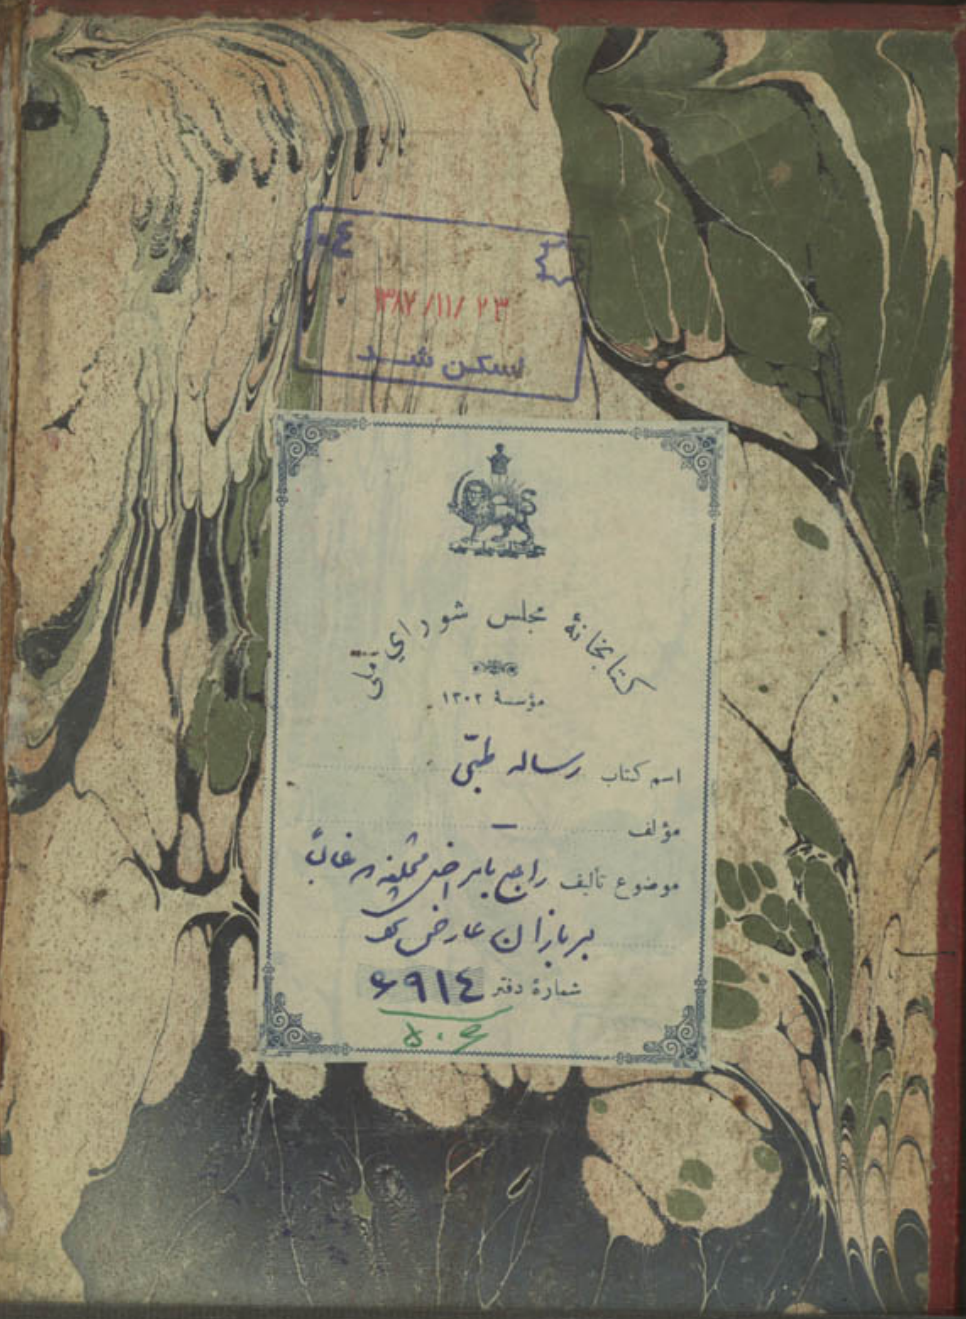 ۰٤
۱۳۸۷/۱۱/۲۳
اسکن شد
کتابخانهٔ مجلس شورای ملی
مؤسسهٔ ۱۳۰۲
اسم کتاب رساله طبّی
مؤلف —
موضوع تألیف راجع بامراضی مختلفه که غالباً
بر بازان عارض
شمارهٔ دفتر ۶۹۱٤
۵۰۶